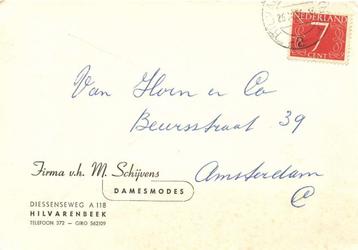 NEDERLAND
7
CENT
Van Horn en Co
Beursstraat 39
Amsterdam
C
Firma v.h. M. Schijvens
DAMESMODES
DIESSENSEWEG A 118
HILVARENBEEK
TELEFOON 372 — GIRO 562109